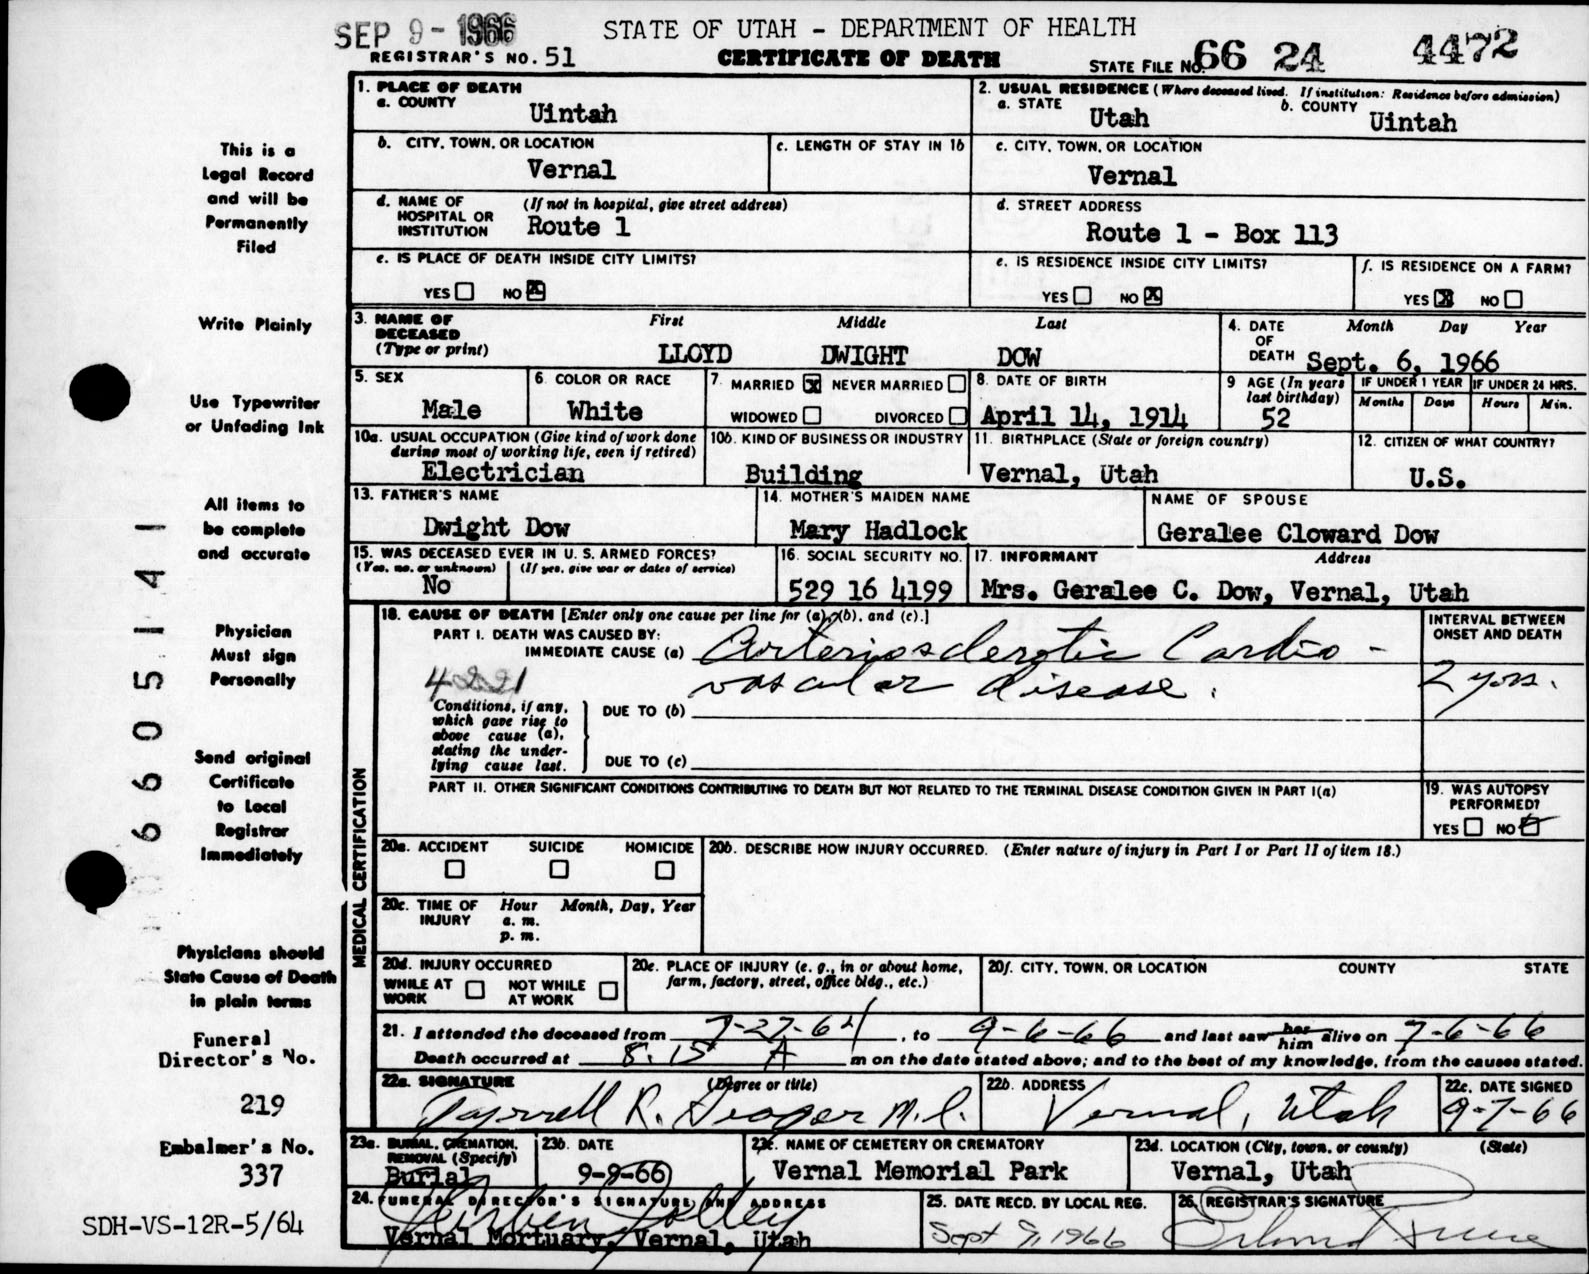 SEP 9 - 1966
STATE OF UTAH - DEPARTMENT OF HEALTH
REGISTRAR'S NO. 51
CERTIFICATE OF DEATH
STATE FILE NO. 66 24 4472
This is a
Legal Record
and will be
Permanently
Filed
Write Plainly
Use Typewriter
or Unfading Ink
All items to
be complete
and accurate
Physician
Must sign
Personally
Send original
Certificate
to Local
Registrar
Immediately
Physicians should
State Cause of Death
in plain terms
Funeral
Director's No.
219
Embalmer's No.
337
SDH-VS-12R-5/64
66 05141
1. PLACE OF DEATH
a. COUNTY
Uintah
2. USUAL RESIDENCE (Where deceased lived. If institution: Residence before admission)
a. STATE Utah b. COUNTY Uintah
b. CITY, TOWN, OR LOCATION
Vernal
c. LENGTH OF STAY IN 1b
c. CITY, TOWN, OR LOCATION
Vernal
d. NAME OF HOSPITAL OR INSTITUTION (If not in hospital, give street address)
Route 1
d. STREET ADDRESS
Route 1 - Box 113
e. IS PLACE OF DEATH INSIDE CITY LIMITS?
YES NO X
e. IS RESIDENCE INSIDE CITY LIMITS?
YES NO X
f. IS RESIDENCE ON A FARM?
YES X NO
3. NAME OF DECEASED (Type or print)
First Middle Last
LLOYD DWIGHT DOW
4. DATE OF DEATH Month Day Year
Sept. 6, 1966
5. SEX
Male
6. COLOR OR RACE
White
7. MARRIED X NEVER MARRIED
WIDOWED DIVORCED
8. DATE OF BIRTH
April 14, 1914
9 AGE (In years last birthday)
52
IF UNDER 1 YEAR IF UNDER 24 HRS.
Months Days Hours Min.
10a. USUAL OCCUPATION (Give kind of work done during most of working life, even if retired)
Electrician
10b. KIND OF BUSINESS OR INDUSTRY
Building
11. BIRTHPLACE (State or foreign country)
Vernal, Utah
12. CITIZEN OF WHAT COUNTRY?
U.S.
13. FATHER'S NAME
Dwight Dow
14. MOTHER'S MAIDEN NAME
Mary Hadlock
NAME OF SPOUSE
Geralee Cloward Dow
15. WAS DECEASED EVER IN U. S. ARMED FORCES?
(Yes, no, or unknown) (If yes, give war or dates of service)
No
16. SOCIAL SECURITY NO.
529 16 4199
17. INFORMANT Address
Mrs. Geralee C. Dow, Vernal, Utah
MEDICAL CERTIFICATION
18. CAUSE OF DEATH [Enter only one cause per line for (a), (b), and (c).]
INTERVAL BETWEEN ONSET AND DEATH
PART I. DEATH WAS CAUSED BY:
IMMEDIATE CAUSE (a) Arteriosclerotic Cardio-
vascular disease.
2 yrs.
4221
Conditions, if any, which gave rise to above cause (a), stating the underlying cause last.
DUE TO (b)
DUE TO (c)
PART II. OTHER SIGNIFICANT CONDITIONS CONTRIBUTING TO DEATH BUT NOT RELATED TO THE TERMINAL DISEASE CONDITION GIVEN IN PART I(a)
19. WAS AUTOPSY PERFORMED?
YES NO
20a. ACCIDENT SUICIDE HOMICIDE
20b. DESCRIBE HOW INJURY OCCURRED. (Enter nature of injury in Part I or Part II of item 18.)
20c. TIME OF INJURY Hour Month, Day, Year
a. m.
p. m.
20d. INJURY OCCURRED
WHILE AT WORK NOT WHILE AT WORK
20e. PLACE OF INJURY (e. g., in or about home, farm, factory, street, office bldg., etc.)
20f. CITY, TOWN, OR LOCATION COUNTY STATE
21. I attended the deceased from 7-27-64, to 9-6-66 and last saw her him alive on 7-6-66
Death occurred at 8:15 A m on the date stated above; and to the best of my knowledge, from the causes stated.
22a. SIGNATURE (Degree or title)
R. M.D.
22b. ADDRESS
Vernal, Utah
22c. DATE SIGNED
9-7-66
23a. BURIAL, CREMATION, REMOVAL (Specify)
Burial
23b. DATE
9-9-66
23c. NAME OF CEMETERY OR CREMATORY
Vernal Memorial Park
23d. LOCATION (City, town, or county) (State)
Vernal, Utah
24. FUNERAL DIRECTOR'S SIGNATURE AND ADDRESS
Vernal Mortuary, Vernal, Utah
25. DATE RECD. BY LOCAL REG.
Sept 9, 1966
26. REGISTRAR'S SIGNATURE